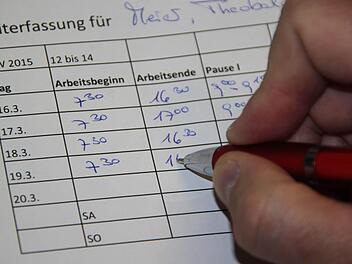 iterfassung für Meier, Theobald
V 2015 12 bis 14
ag Arbeitsbeginn Arbeitsende Pause I
16.3. 7 30 16 30
17.3. 7 30 17 00 9 00
18.3. 7 30 16 30
19.3. 7 30
20.3.
SA
SO